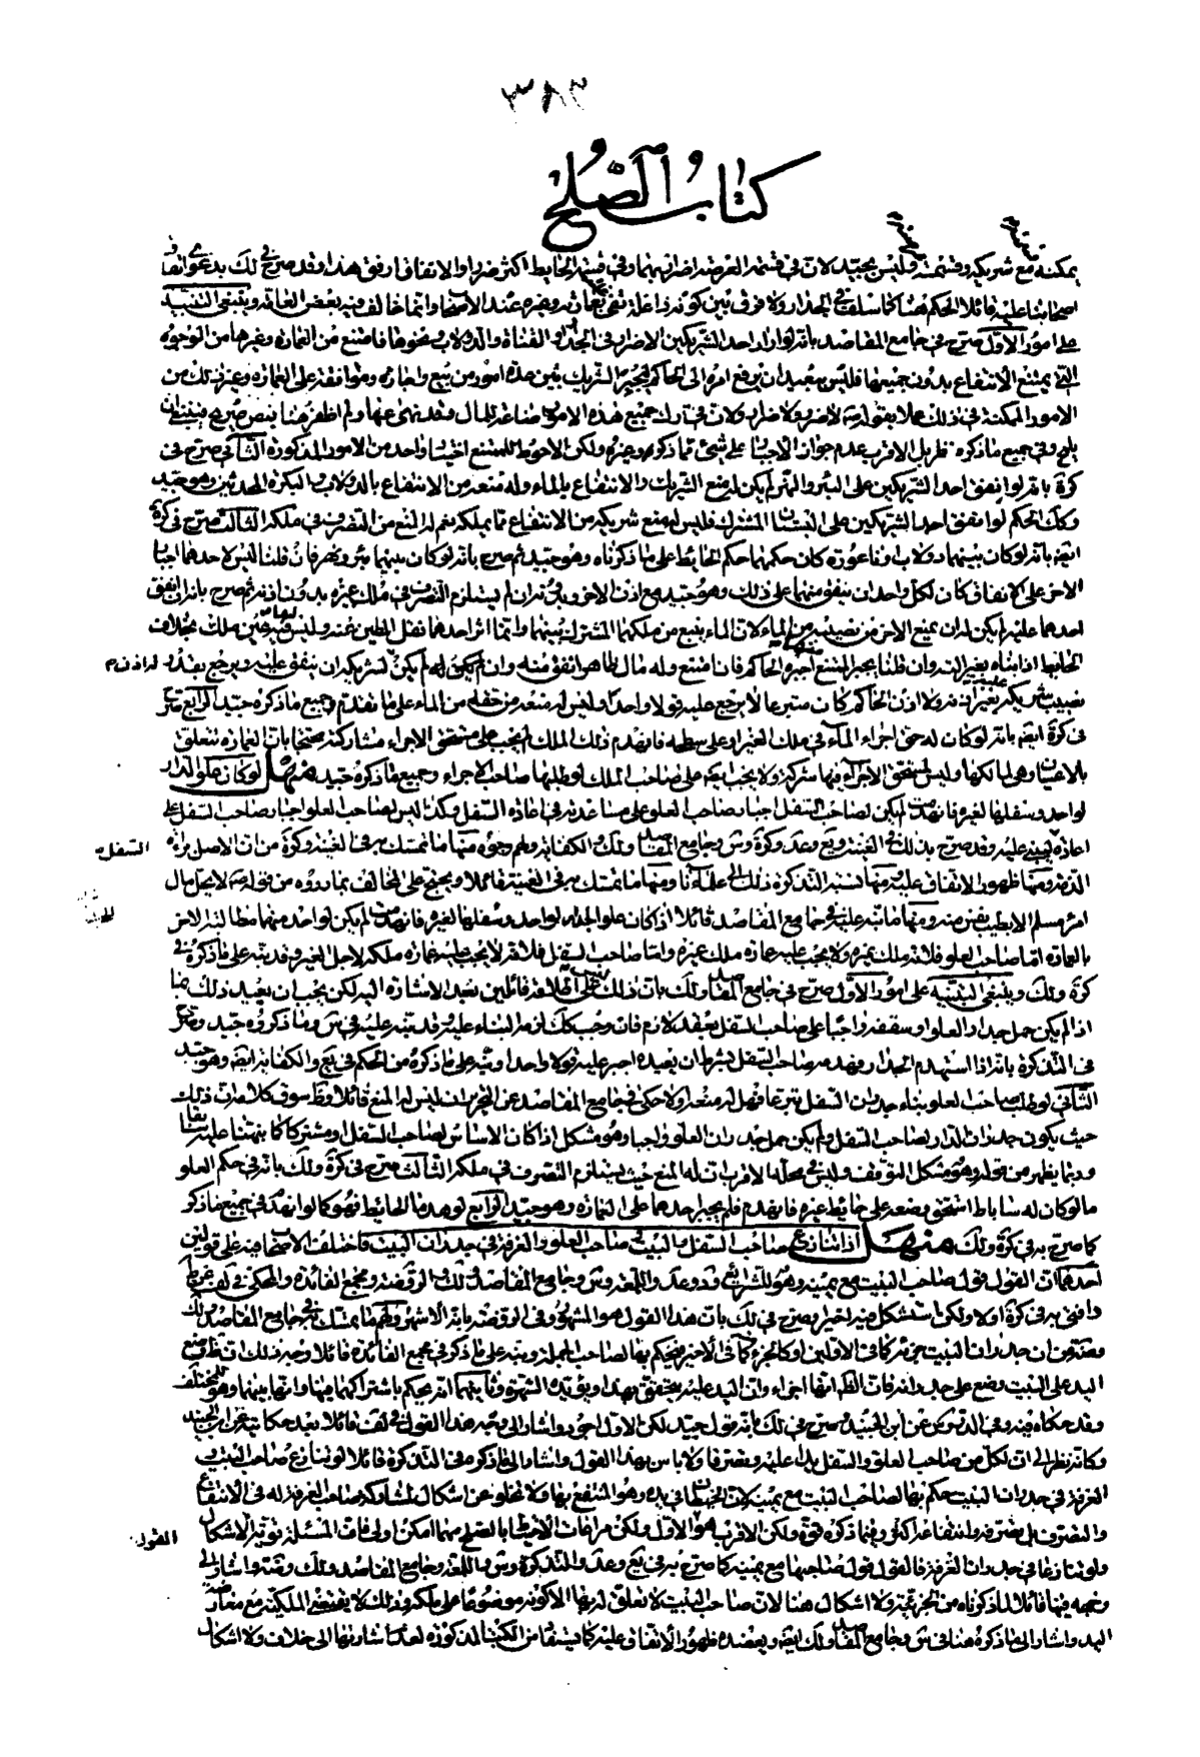 ٣٨٣
كتاب الصلح
يمكنه مع شريكه وقسمته وليس بجيد لان في قسمة العرصة اضرار بهما وفي قسمة الحايط اكثر ضررا والاتفاق ارفق هذا وقد صرح في لك بدعوى اتفاق
اصحابنا عليه قائلا الحكم هنا كما سلف في الجدار ولا فرق بين كونه ذا غلة تفي بنفقاته وغيره عند الاصحاب وانما خالف فيه بعض العامة وينبغي التنبيه
على امور الاول صرح في جامع المقاصد بانه لو اراد احد الشريكين الاضرار في الجدار والقناة والدولاب ونحوها فامتنع من العمارة وغيرها من الوجوه
التي يمتنع الانتفاع بدون جميعها فليس ببعيد ان يرفع امره الى الحاكم ليجبر الشريك بين عدة امور من بيع واجارة وموافقة على العمارة وغير ذلك من
الامور الممكنة في ذلك عملا بقوله لا ضرر ولا ضرار ولان في ترك جميع هذه الامور اضاعة للمال وقد نهى عنها ولم اظفر هنا بنص صريح
وفي جميع ما ذكره نظر بل الاقرب عدم جواز الاجبار على شئ مما ذكره وغيره ولكن الاحوط للممتنع اختيار واحد من الامور المذكورة الثاني صرح في
كرة بانه لو انفق احد الشريكين على البئر والنهر لم يكن له منع الشريك والانتفاع بالماء وله منعه من الانتفاع بالدولاب والبكرة المحدثين وهو جيد
وكك الحكم لو انفق احد الشريكين على البستان المشترك فليس له منع شريكه من الانتفاع بما يملكه نعم له المنع من التصرف في ملكه الثالث صرح في كرة
ايضه بانه لو كان بينهما دولاب او ناعورة كان حكمهما حكم الحائط على ما ذكرناه وهو جيد ثم صرح بانه لو كان بينهما بئر ونهر فان قلنا ليس لاحدهما اجبار
الاخر على الانفاق كان لكل واحد ان ينفق منهما على ذلك وهو جيد مع اذن الاخر وبدونه ان لم يستلزم التصرف في ملك غيره بدون اذنه ثم صرح بانه ان انفق
احدهما عليه لم يكن له ان يمنع الاخر من نصيبه من الماء لان الماء ينبع من ملكهما المشترك بينهما وانما اثر احدهما نقل الطين عنه وليس فيه عين ملك بخلاف
الحايط اذا بناه بغير اذنه وان قلنا يجبر الممتنع اجبره الحاكم فان امتنع وله مال ظاهر انفق منه وان لم يكن له لم يكن لشريكه ان ينفق عليه ويرجع بقدر
نصيب شريكه بغير اذنه ولا اذن الحاكم كان متبرعا لا يرجع عليه قولا واحدا وليس له منعه من حقه من الماء على ما تقدم وجميع ما ذكره جيد الرابع صرح
في كرة ايضه بانه لو كان له حق اجراء الماء في ملك الغير او على سطحه فانهدم ذلك الملك لم يجب على مستحق الاجراء مشاركته في العمارة لان العمارة تتعلق
بالاعيان وهي لمالكها وليس لمستحق الاجراء فيها شركة ولا يجب ايضه على صاحب الملك لو طلبها صاحب الاجراء وجميع ما ذكره جيد منهل لو كان علو الدار
لواحد وسفلها لغيره فانهدمت لم يكن لصاحب السفل اجبار صاحب العلو على مساعدته في اعادة السفل وكذا ليس لصاحب العلو اجبار صاحب السفل على
اعادته ليبني عليه وقد صرح بذلك في الغنية ويع وعد وكرة وس وجامع المقاصد ولك والكفاية ولهم وجوه منها ما تمسك به في الغنية وكرة من ان الاصل براءة
الذمة ومنها ظهور الاتفاق عليه ومنها نسبة التذكرة ذلك الى علمائنا ومنها ما تمسك به في الغنية قائلا ويحتج على المخالف بما رووه من قوله لا يحل مال
امرء مسلم الا بطيب نفس منه ومنها ما نبه عليه في جامع المقاصد قائلا اذا كان علو الجدار لواحد وسفلها لغيره فانهدمت لم يكن لواحد منهما مطالبة الاخر
بالعمارة اما صاحب العلو فلانه ملك غيره ولا يجب عليه عمارة ملك غيره واما صاحب السفل فلانه لا يجب عليه عمارة ملكه لاجل الغير وقد نبه على ما ذكره في
كرة ولك وينبغي التنبيه على امور الاول صرح في جامع المقاصد ولك بان ذلك قائلين بعد الاشارة اليه لكن يجب ان يعيد ذلك بما
اذا لم يكن حمل جدار العلو او سقفه واجبا على صاحب السفل بعقد لازم فان وجب كك لزمه البناء عليه وقد نبه عليه في س وما ذكروه جيد وصرح
في التذكرة بانه اذا استهدم الجدار وهدمه صاحب السفل بشرط ان يعيده اجبر عليه قولا واحدا ونبه على ما ذكره من الحكم في يع والكفاية ايضه وهو جيد
الثاني لو طلب صاحب العلو بناء جدران السفل تبرعا فهل له منعه اولا حكى في جامع المقاصد عن التحرير ان ليس له المنع قائلا وظ سوق كلامه ان ذلك
حيث يكون جدران الدار لصاحب السفل ولم يكن حمل جدران العلو واجبا وهو مشكل اذا كان الاساس لصاحب السفل او مشتركا كما نبهنا عليه سابقا
وربما يظهر من قوله وهو مشكل التوقف وليس في محله بل الاقرب ان له المنع حيث يستلزم التصرف في ملكه الثالث صرح في كرة ولك بانه في حكم العلو
ما لو كان له ساباط استحق وضعه على حائط غيره فانهدم فلم يجبر احدهما على العمارة وهو جيد الرابع لو هدما الحائط فهو كما لو انهدم في جميع ما ذكر
كما صرح به في كرة ولك منهل اذا تنازع صاحب السفل والبيت وصاحب العلو والغرفة في جدران البيت فاختلف الاصحاب فيه على قولين
احدهما ان القول قول صاحب البيت مع يمينه وهو للشرائع وعد واللمعة وس وجامع المقاصد ولك والروضة ومجمع الفائدة والمحكي في لف عن ط
وافتى به في كرة اولا ولكن استشكل فيه اخيرا وصرح في لك بان هذا القول هو المشهور وفي الروضة بانه الاشهر ولهم ما تمسك به في جامع المقاصد ولك
وضة من ان جدران البيت جزئه كما في الاولين او كالجزء كما في الاخير فيحكم بها لصاحب الجملة ونبه على ما ذكر في مجمع الفائدة قائلا وجه ذلك
اليد على البيت وضع على جدرانه فان الظ انها اجزاء وان اليد عليه يتحقق بهذا ويؤيده الشهرة وثانيهما انه يحكم باشتراكهما فيها وانها بينهما وهو للمختلف
وقد حكاه فيه وفي الدروس عن ابن الجنيد وصرح في لك بانه قول جيد لكن الاول اجود واشار الى وجه هذا القول في لف قائلا بعد حكايته عن ابن الجنيد
وكانه نظر الى ان لكل من صاحب العلو والسفل يدا عليه وتصرفا ولا باس بهذا القول واشار الى ما ذكره في التذكرة قائلا لو تنازع صاحب البيت
والغرفة في جدران البيت حكم بها لصاحب البيت مع يمينه لان الحيطان في يده وهو المنتفع بها ولا يخلو عن اشكال لمشاركة صاحب الغرفة له في الانتفاع
والتصرف بل تصرفه وانتفاعه اكثر وفيما ذكره قوة ولكن الاقرب هو الاول ولكن مراعات الاحتياط بالصلح مهما امكن اولى فان المسئلة قوية الاشكال
ولو تنازعا في جدران الغرفة فالقول قول صاحبها مع يمينه كما صرح به في يع وعد والتذكرة وس واللمعة وجامع المقاصد ولك وضة واشار الى
وجهه فيها قائلا لما ذكرناه من الجزئية ولا اشكال هنا لان صاحب البيت لا تعلق له بها الا كونه موضوعا على ملكه وذلك لا يقتضي الملكية مع معارضة
اليد واشار الى ما ذكره هنا في س وجامع المقاصد ولك ايضه ويعضده ظهور الاتفاق عليه كما يستفاد من الكتب المذكورة لعدم اشارتها الى خلاف ولا اشكال
السفل
القول